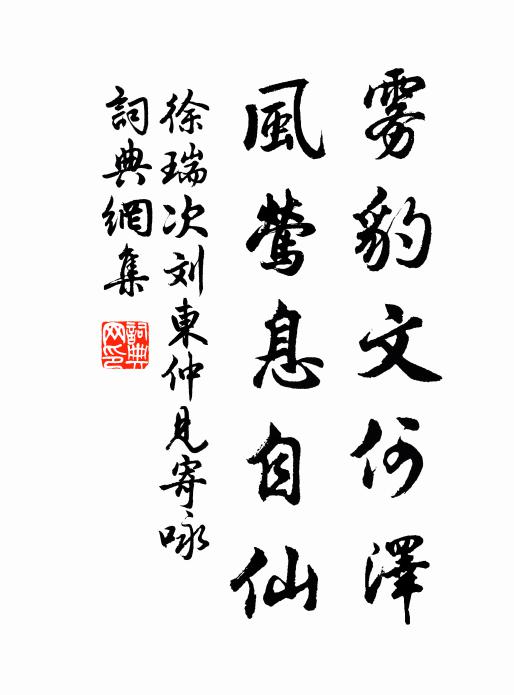 雾豹文何澤
風鶯息自仙
徐瑞次刘東仲見寄咏
詞典網集
詞典網印